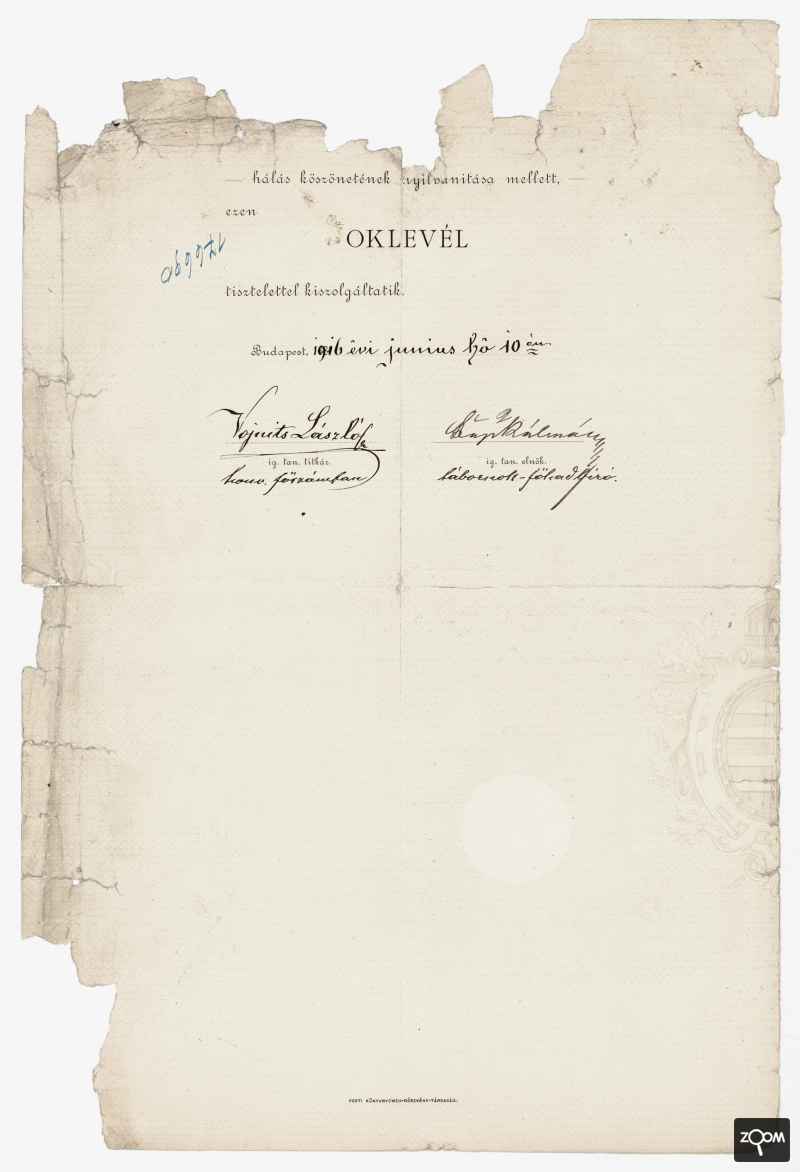 — hálás köszönetének nyilvanitása mellett, —
ezen
OKLEVÉL
176690
tisztelettel kiszolgáltatik.
Budapest, 1916 évi junius hó 10 én
Vojnits László
Kálmán
ig. tan. titkár.
ig. tan. elnök.
honv. főszámtan
tábornok-főhadbíró.
PESTI KÖNYVNYOMDA-RÉSZVÉNY-TÁRSASÁG.
ZOOM